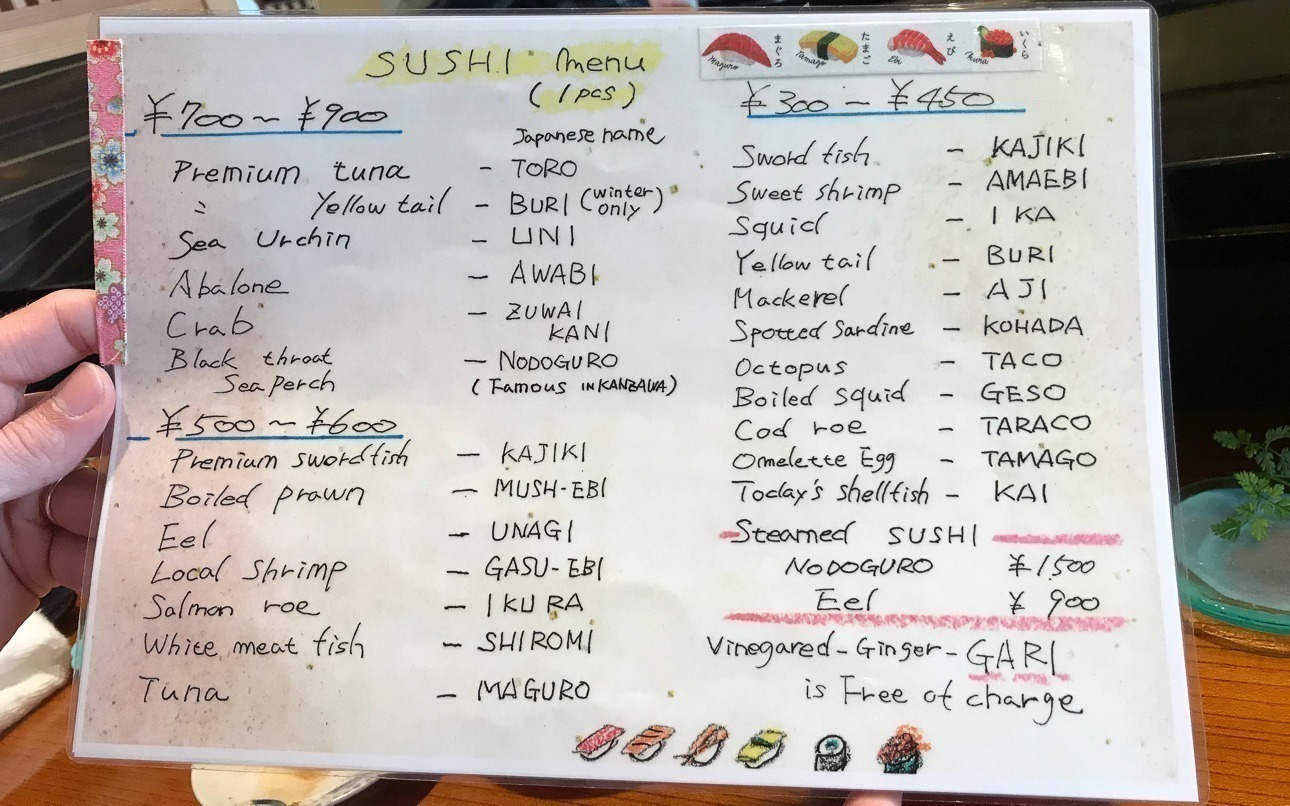 SUSHI menu
(1pcs)
まぐろ
Maguro
たまご
Tamago
えび
Ebi
いくら
Ikura
¥700～¥900
Japanese name
Premium tuna - TORO
〃 Yellow tail - BURI (winter only)
Sea Urchin - UNI
Abalone - AWABI
Crab - ZUWAI
KANI
Black throat - NODOGURO
Sea perch (Famous IN KANZAWA)
¥500～¥600
Premium swordfish - KAJIKI
Boiled prawn - MUSH-EBI
Eel - UNAGI
Local Shrimp - GASU-EBI
Salmon roe - IKURA
White meat fish - SHIROMI
Tuna - MAGURO
¥300～¥450
Sword fish - KAJIKI
Sweet shrimp - AMAEBI
Squid - IKA
Yellow tail - BURI
Mackerel - AJI
Spotted Sardine - KOHADA
Octopus - TACO
Boiled squid - GESO
Cod roe - TARACO
Omelette Egg - TAMAGO
Today's shellfish - KAI
Steamed SUSHI
NODOGURO ¥1500
Eel ¥900
Vinegared-Ginger-GARI
is Free of charge